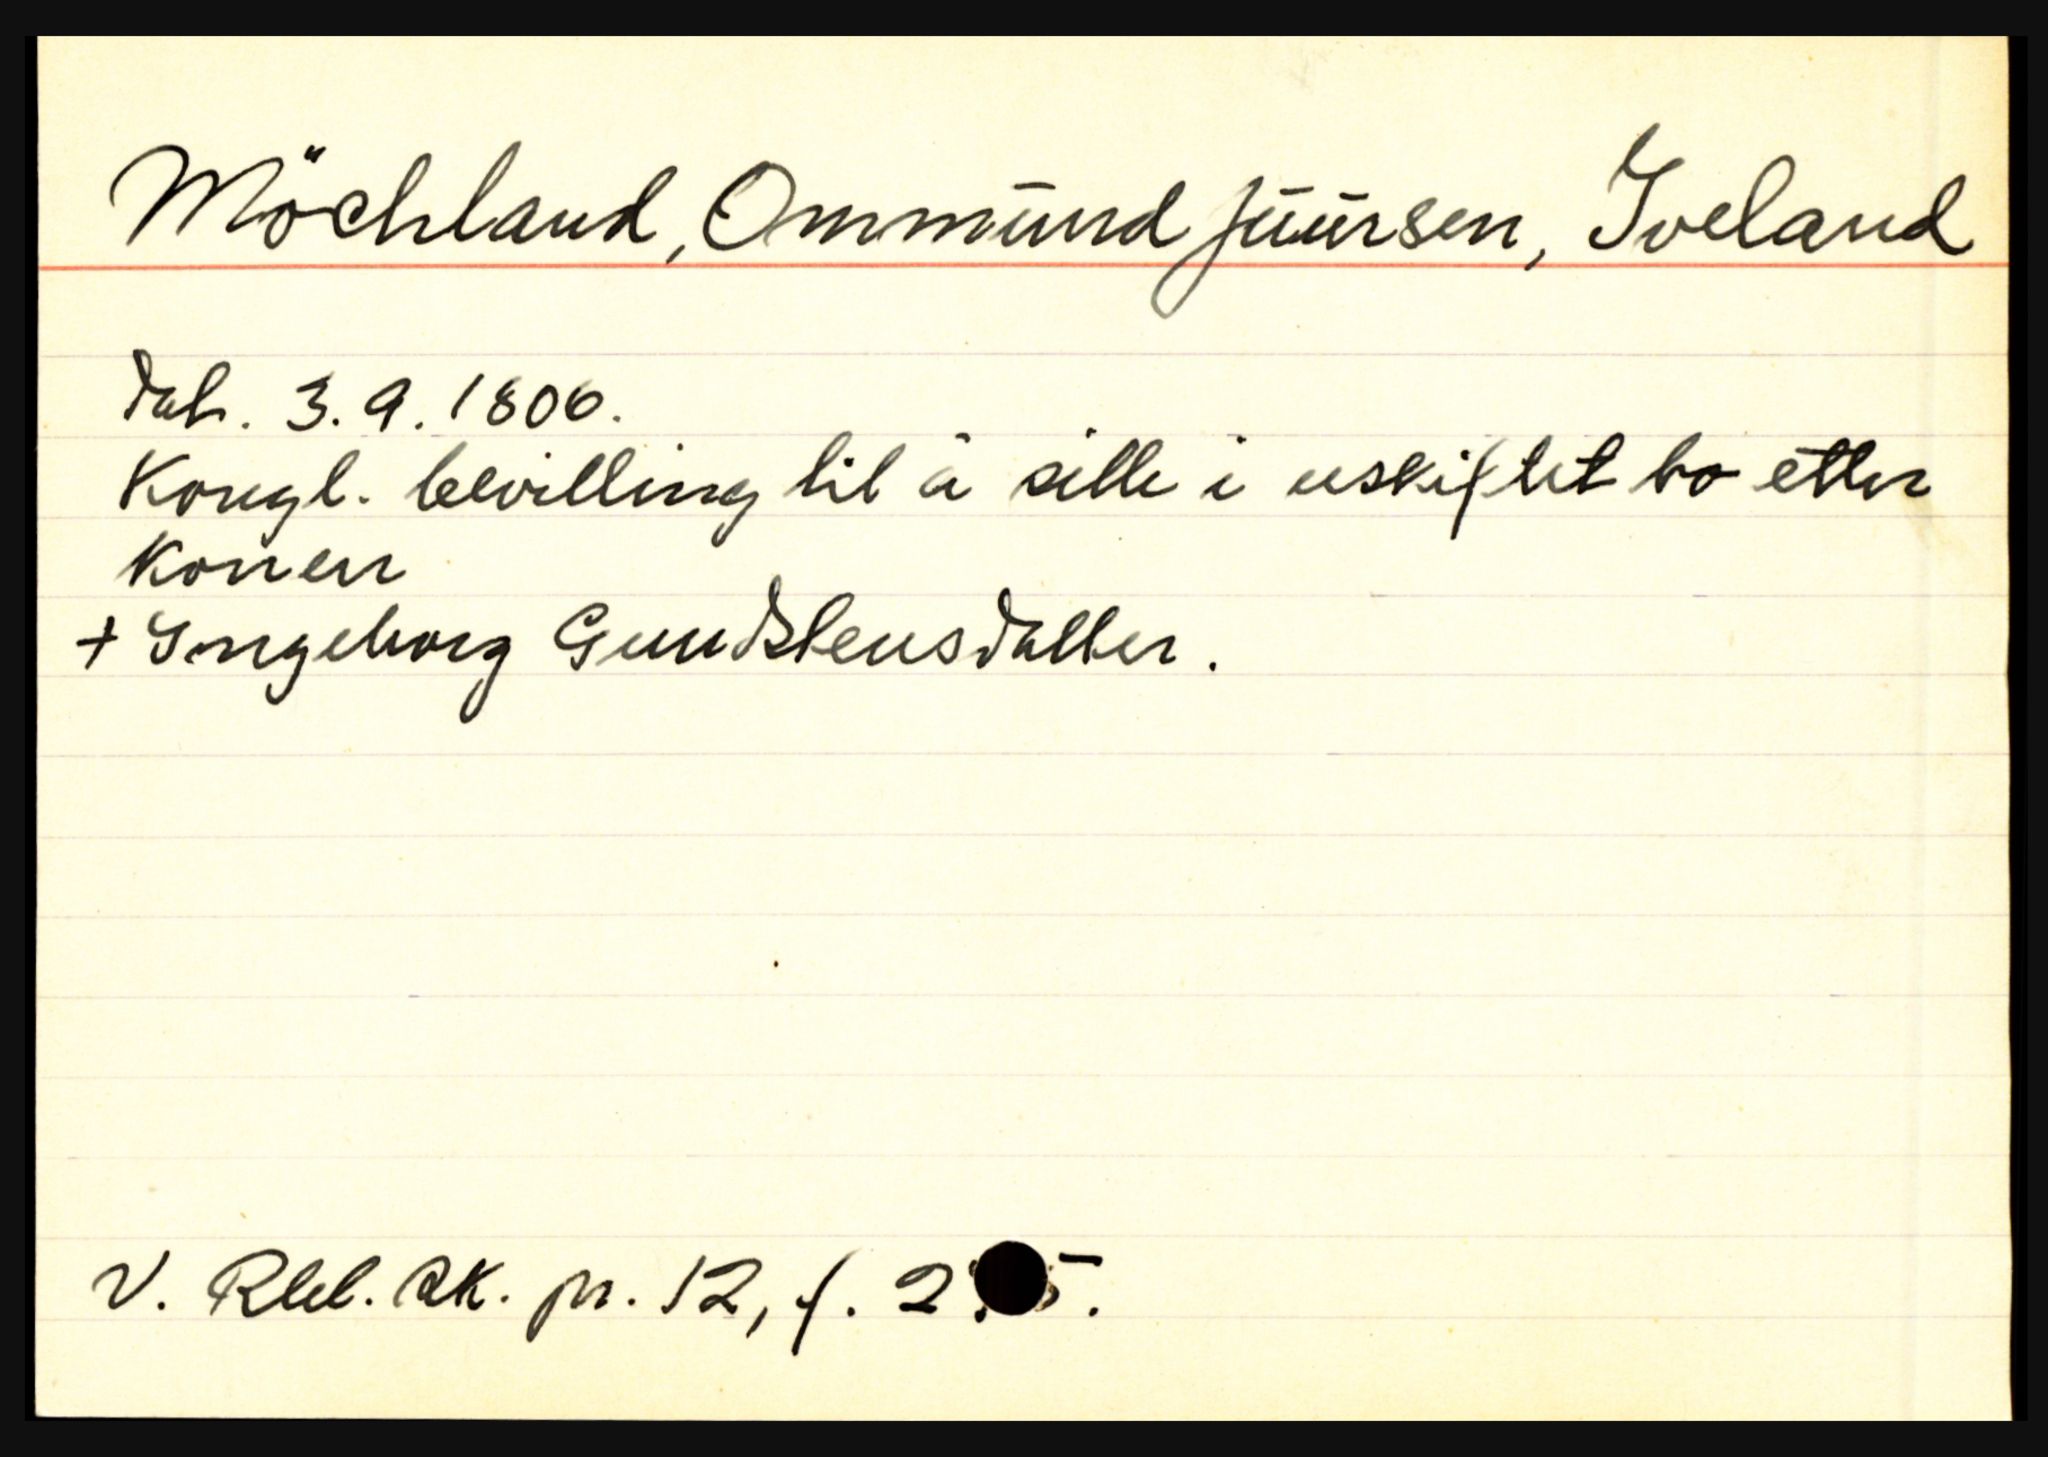 Möchland, Ommund Juursen, Iveland
dat. 3.9.1806.
Kongl. bevilling til å sitte i uskiftet bo etter
Konen
+ Ingeborg Gundstensdatter.
V. Rbl. sk. pr. 12, f. 2